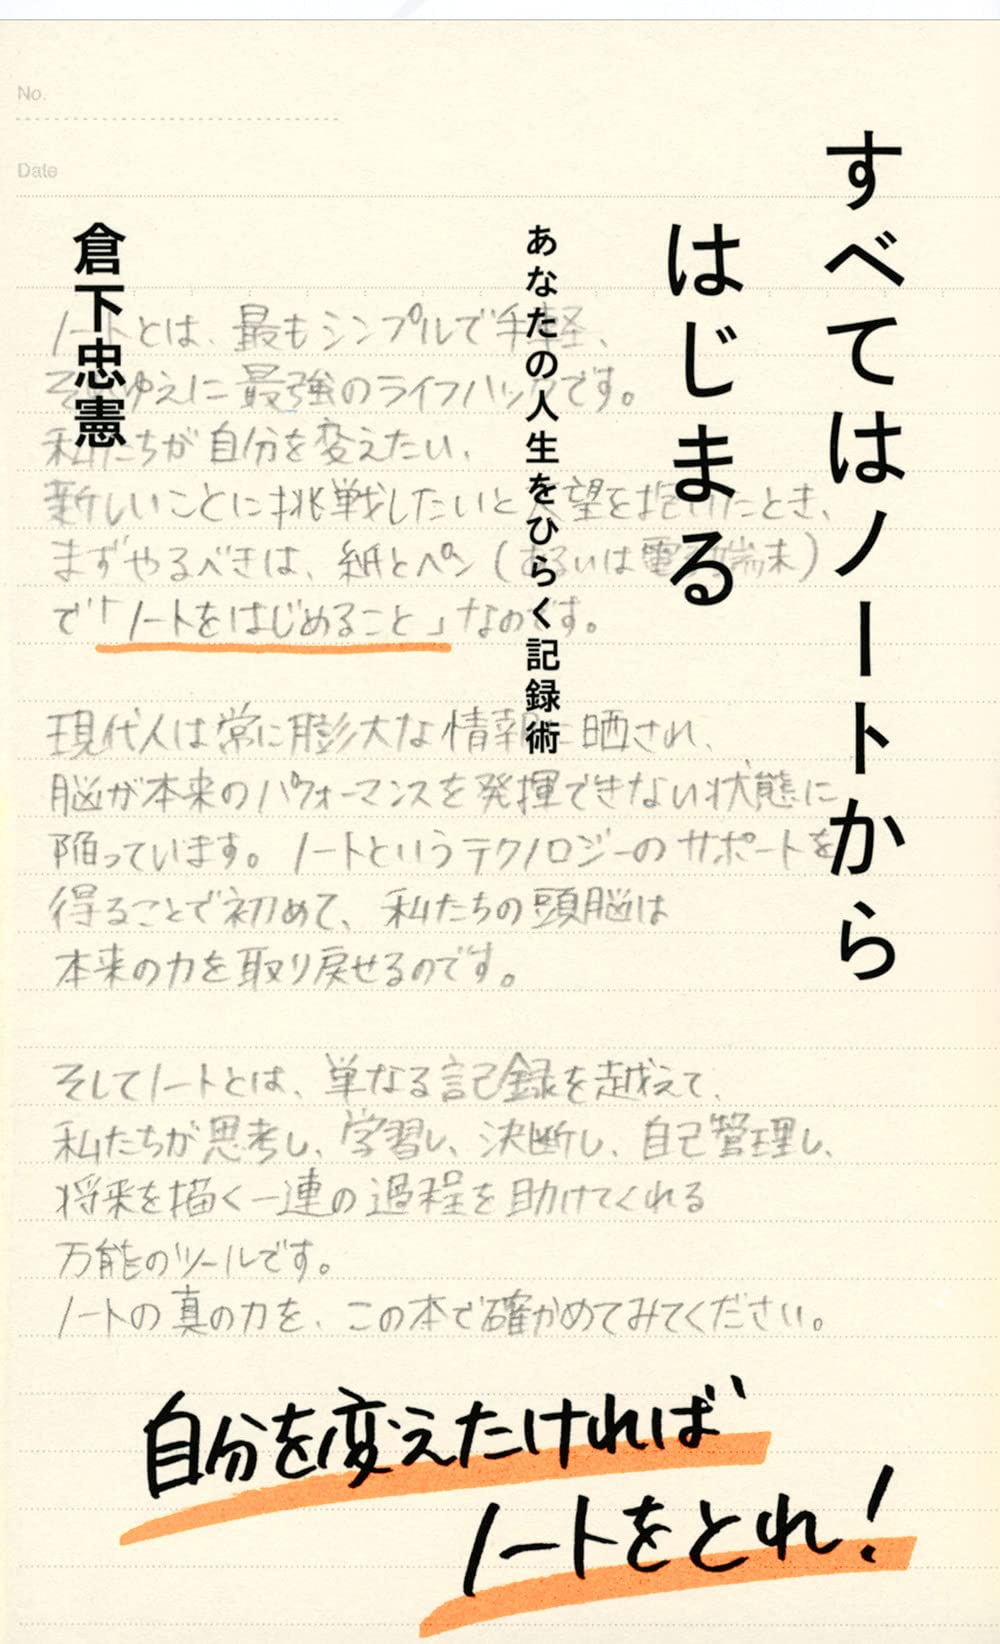 No.
Date
すべてはノートから
はじまる
あなたの人生をひらく記録術
倉下忠憲
ノートとは、最もシンプルで手軽、
それゆえに最強のライフハックです。
私たちが自分を変えたい、
新しいことに挑戦したいと大望を抱いたとき、
まずやるべきは、紙とペン(あるいは電子端末)
で「ノートをはじめること」なのです。
現代人は常に膨大な情報に晒され、
脳が本来のパフォーマンスを発揮できない状態に
陥っています。ノートというテクノロジーのサポートを
得ることで初めて、私たちの頭脳は
本来の力を取り戻せるのです。
そしてノートとは、単なる記録を越えて、
私たちが思考し、学習し、決断し、自己管理し、
将来を描く一連の過程を助けてくれる
万能のツールです。
ノートの真の力を、この本で確かめてみてください。
自分を変えたければ
ノートをとれ!